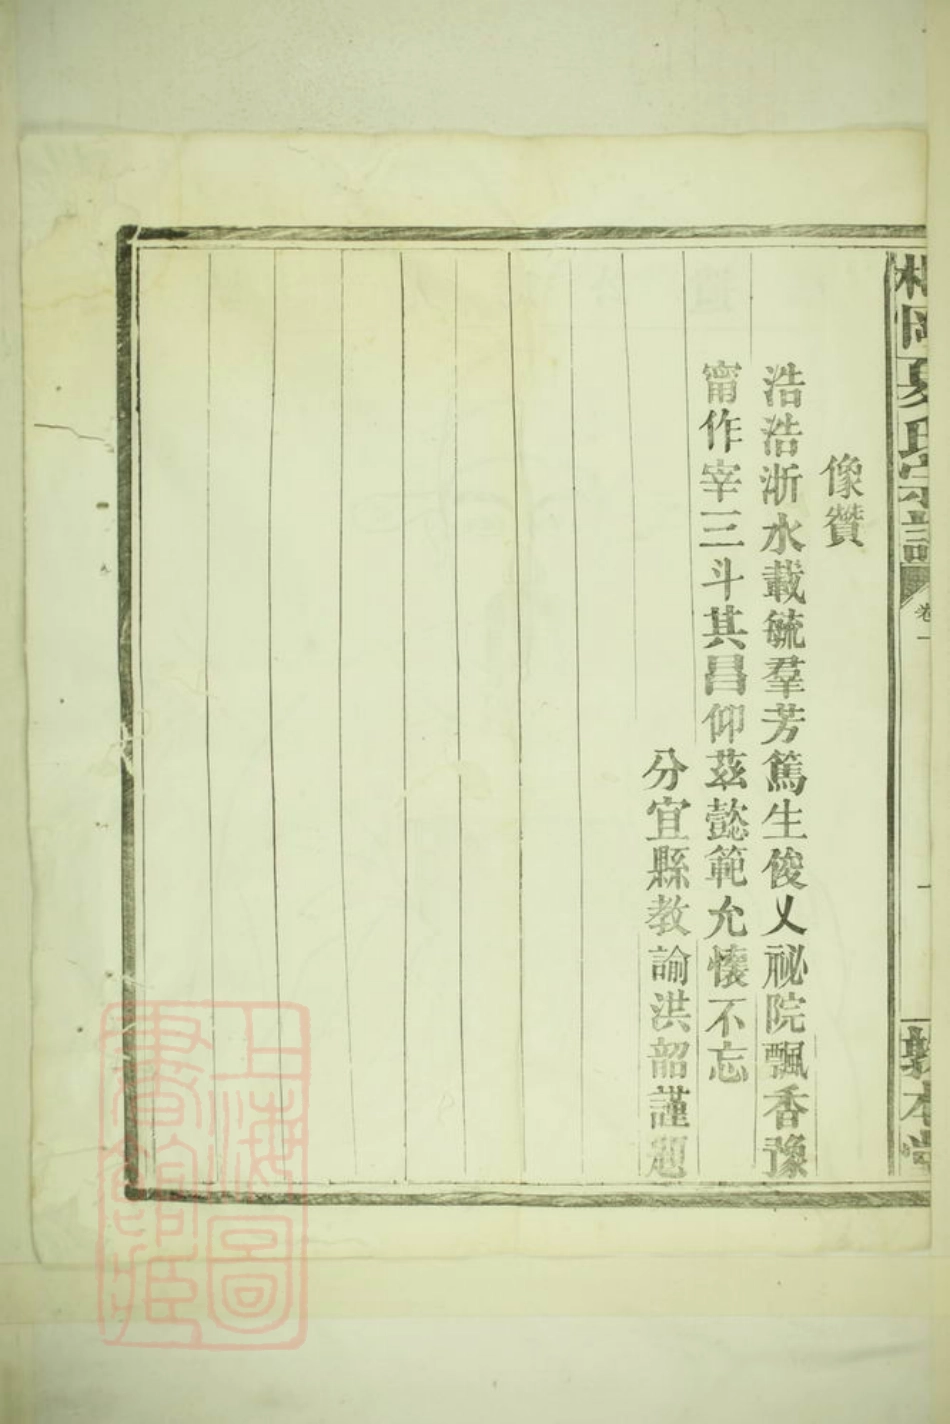 岡夏氏宗譜
卷一
一
敦本堂
像贊
浩浩浙水載毓羣芳篤生俊乂祕院飄香豫
甯作宰三斗其昌仰茲懿範允懷不忘
分宜縣教諭洪韶謹題
上海圖
書館藏